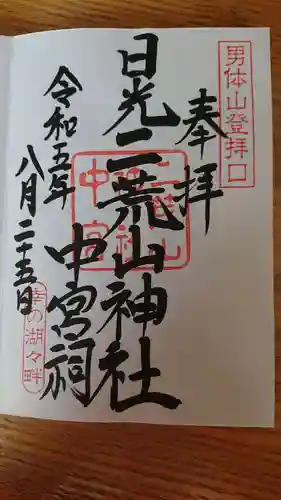 男体山登拝口
奉拝
日光二荒山神社
中宮祠
令和五年
八月二十五日
幸の湖々畔